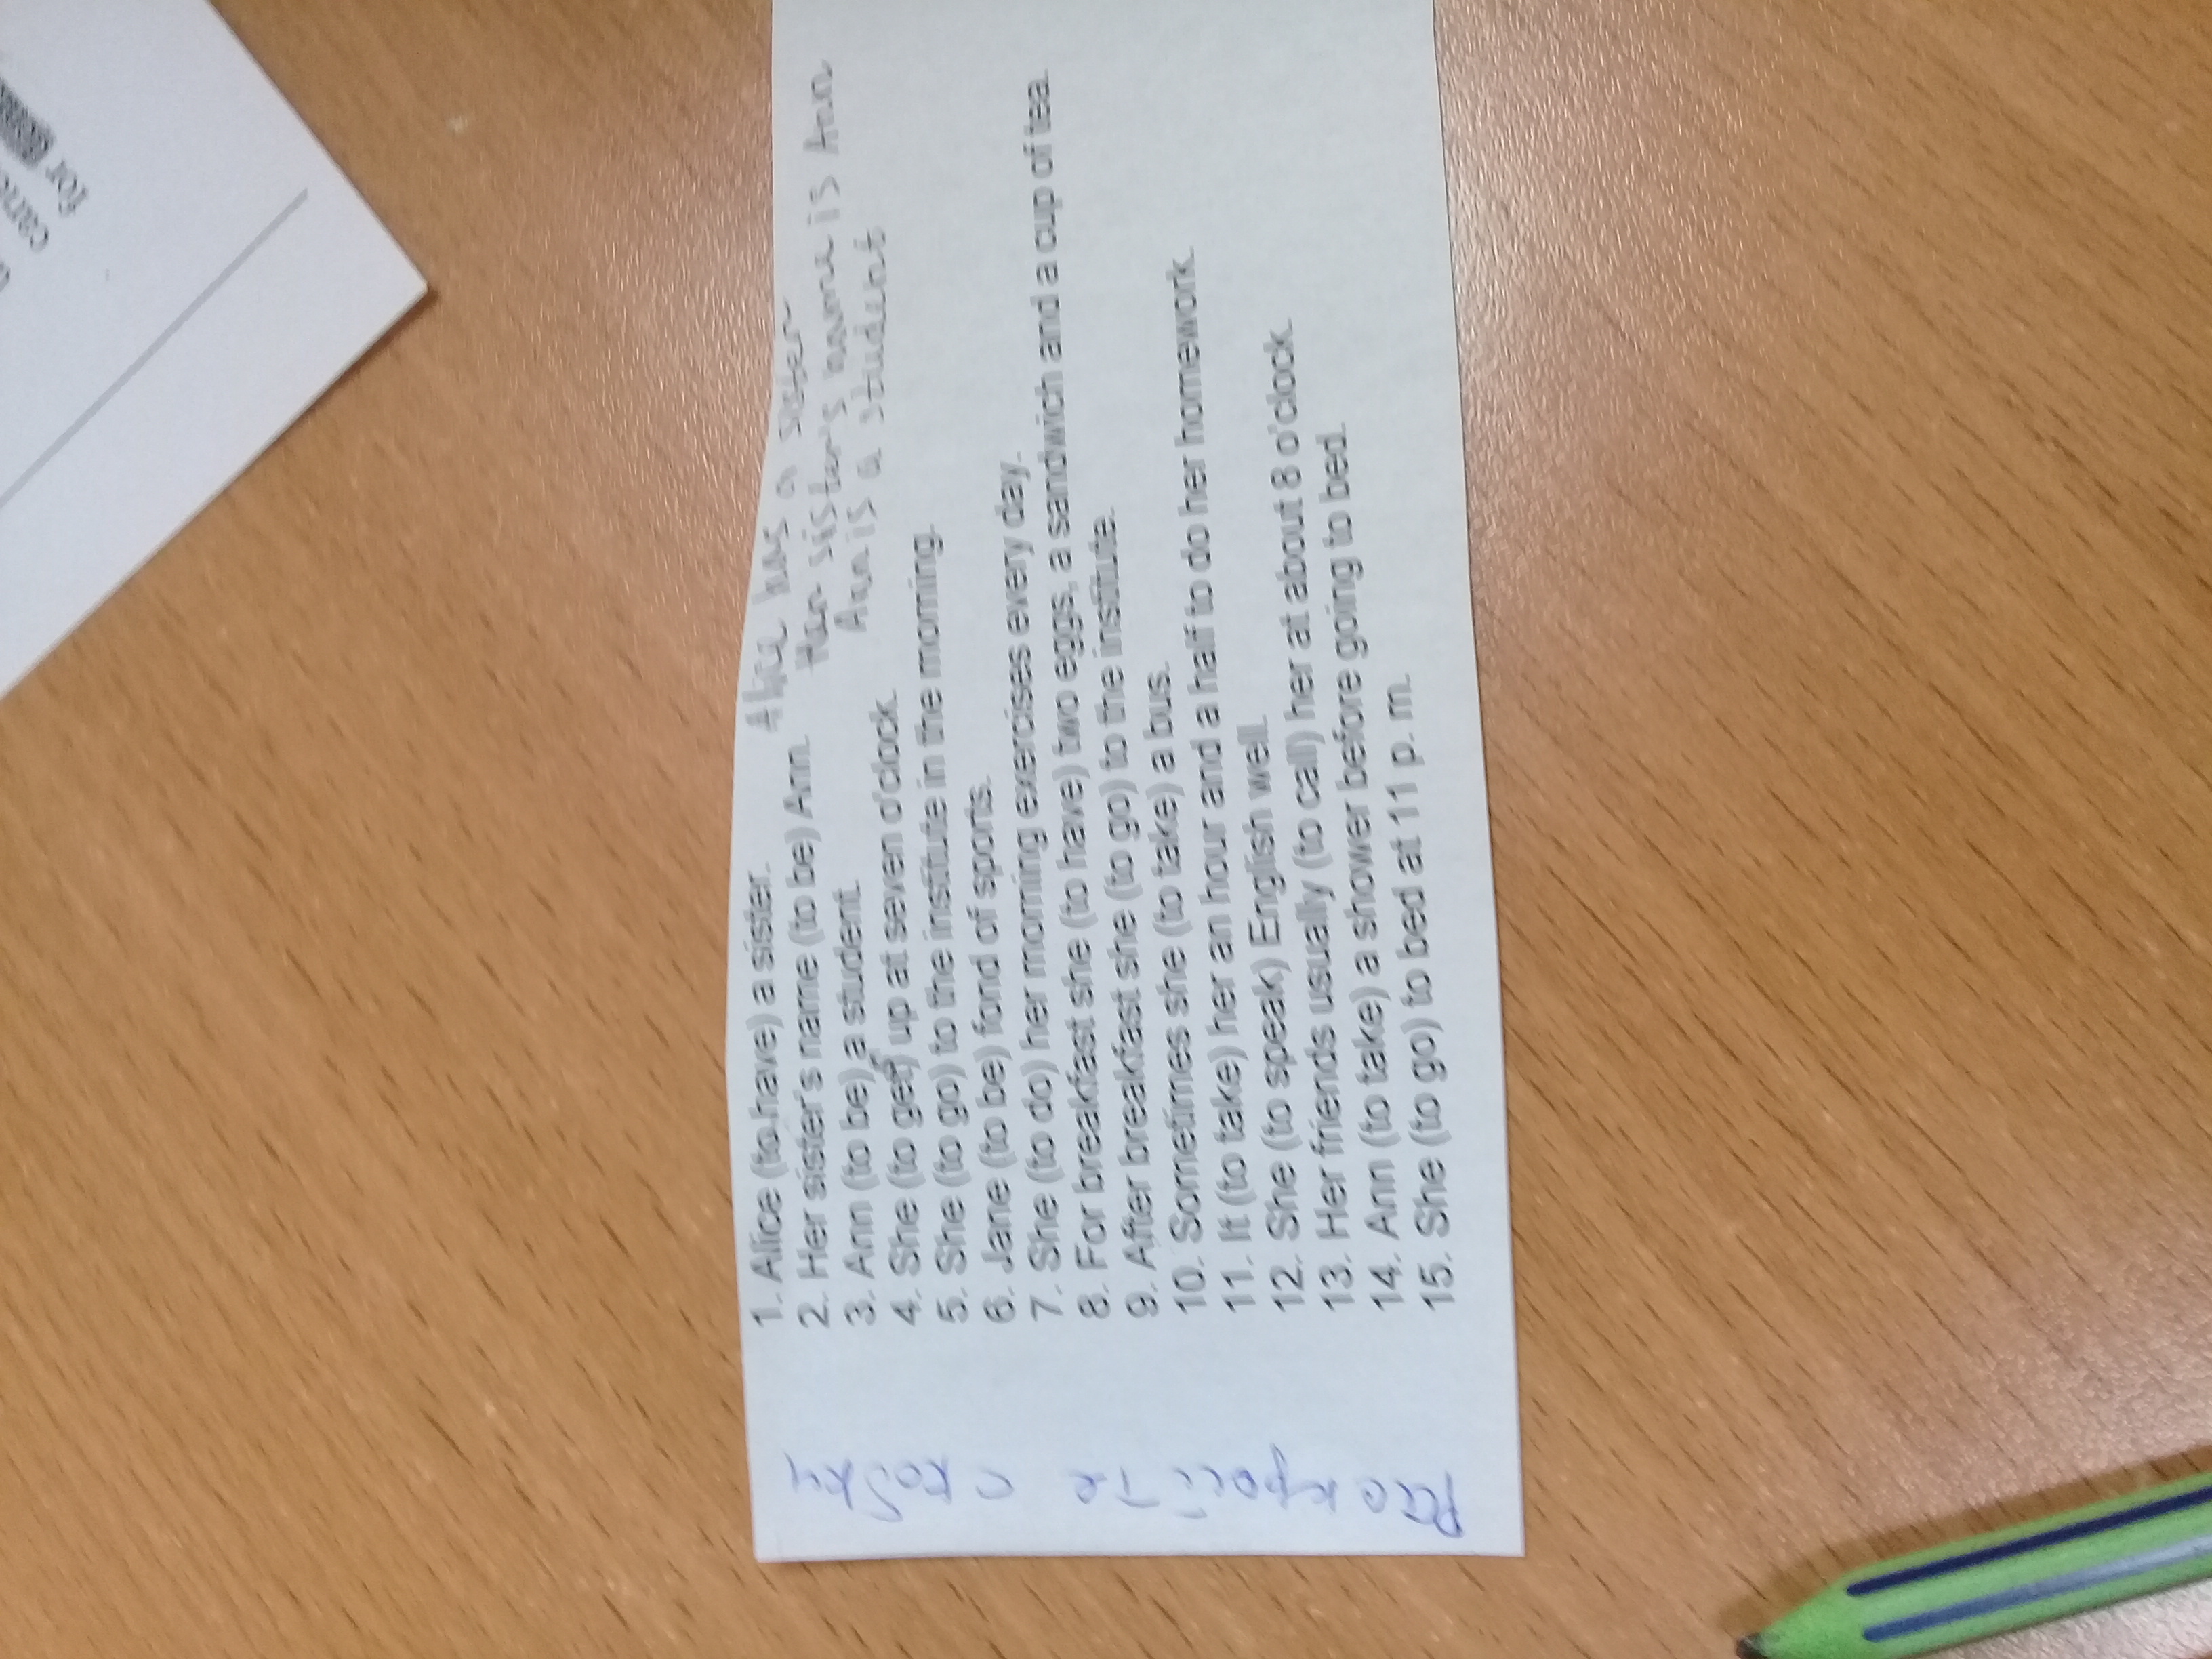 1. Alice (to have) a sister. Alice has a sister
2. Her sister's name (to be) Ann. Her sister's name is Ann
3. Ann (to be) a student. Ann is a student
4. She (to get) up at seven o'clock.
5. She (to go) to the institute in the morning.
6. Jane (to be) fond of sports.
7. She (to do) her morning exercises every day.
8. For breakfast she (to have) two eggs, a sandwich and a cup of tea.
9. After breakfast she (to go) to the institute.
10. Sometimes she (to take) a bus.
11. It (to take) her an hour and a half to do her homework.
12. She (to speak) English well.
13. Her friends usually (to call) her at about 8 o'clock.
14. Ann (to take) a shower before going to bed.
15. She (to go) to bed at 11 p. m.
Раскройте скобки
for